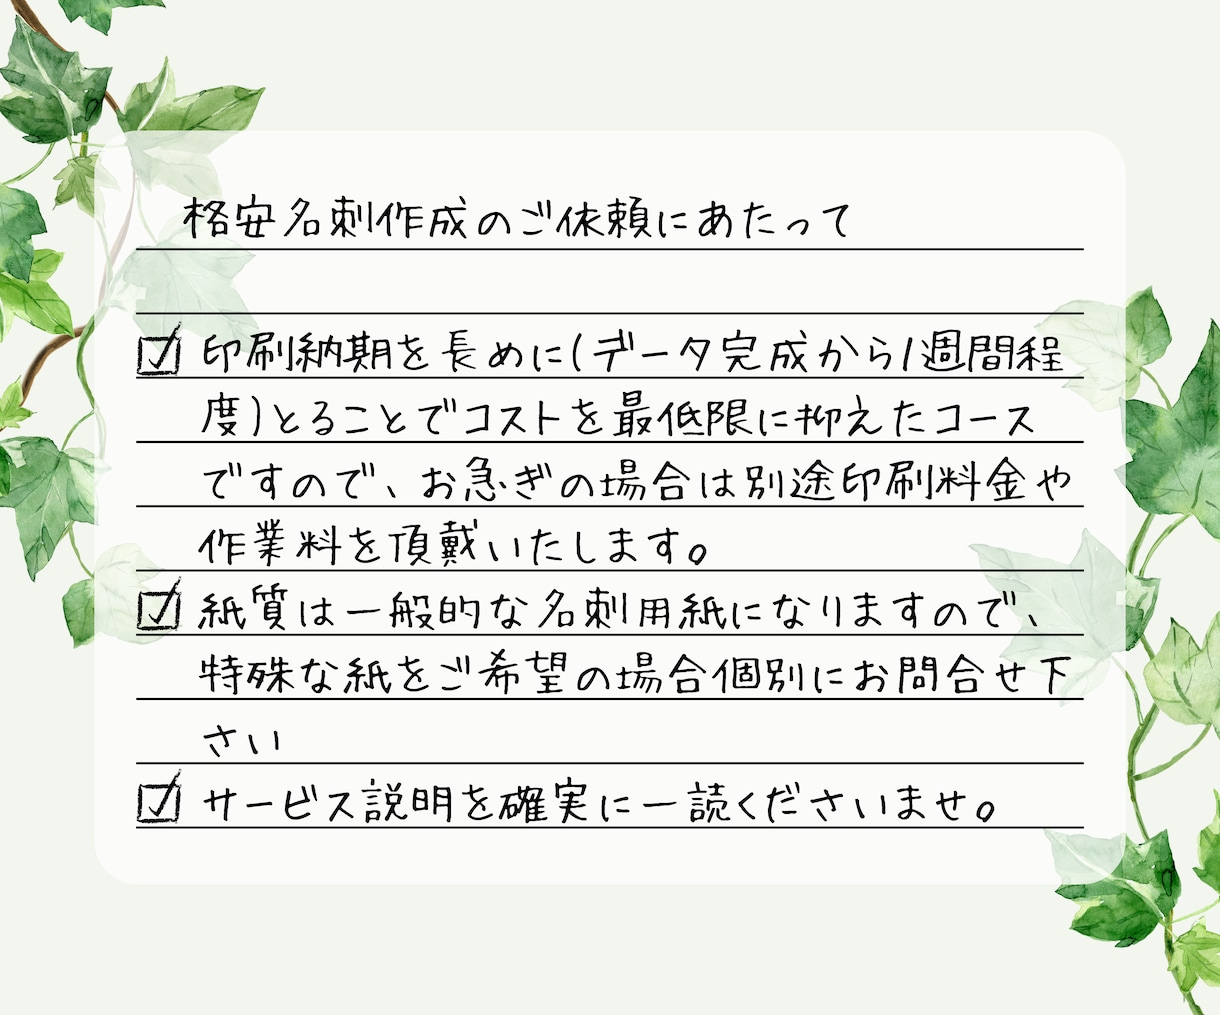 格安名刺作成のご依頼にあたって
印刷納期を長めに(データ完成から1週間程
度)とることでコストを最低限に抑えたコース
ですので、お急ぎの場合は別途印刷料金や
作業料を頂戴いたします。
紙質は一般的な名刺用紙になりますので、
特殊な紙をご希望の場合個別にお問合せ下
さい
サービス説明を確実に一読くださいませ。